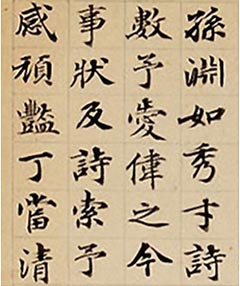 孫淵如秀才詩
數予愛偉之今
事狀及詩索予
感頑豔丁當清